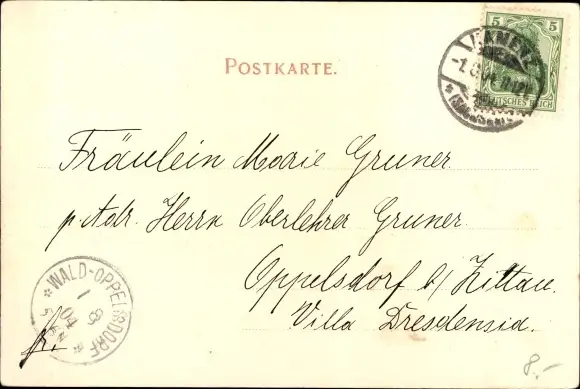 5
KAMENZ
(SACHSEN)
DEUTSCHES REICH
POSTKARTE.
Fräulein Marie Gruner.
p. Adr. Herrn Oberlehrer Gruner.
Oppelsdorf b/ Zittau.
Villa Dresdensia.
WALD-OPPELSDORF
1 8
04
fr.
8.-